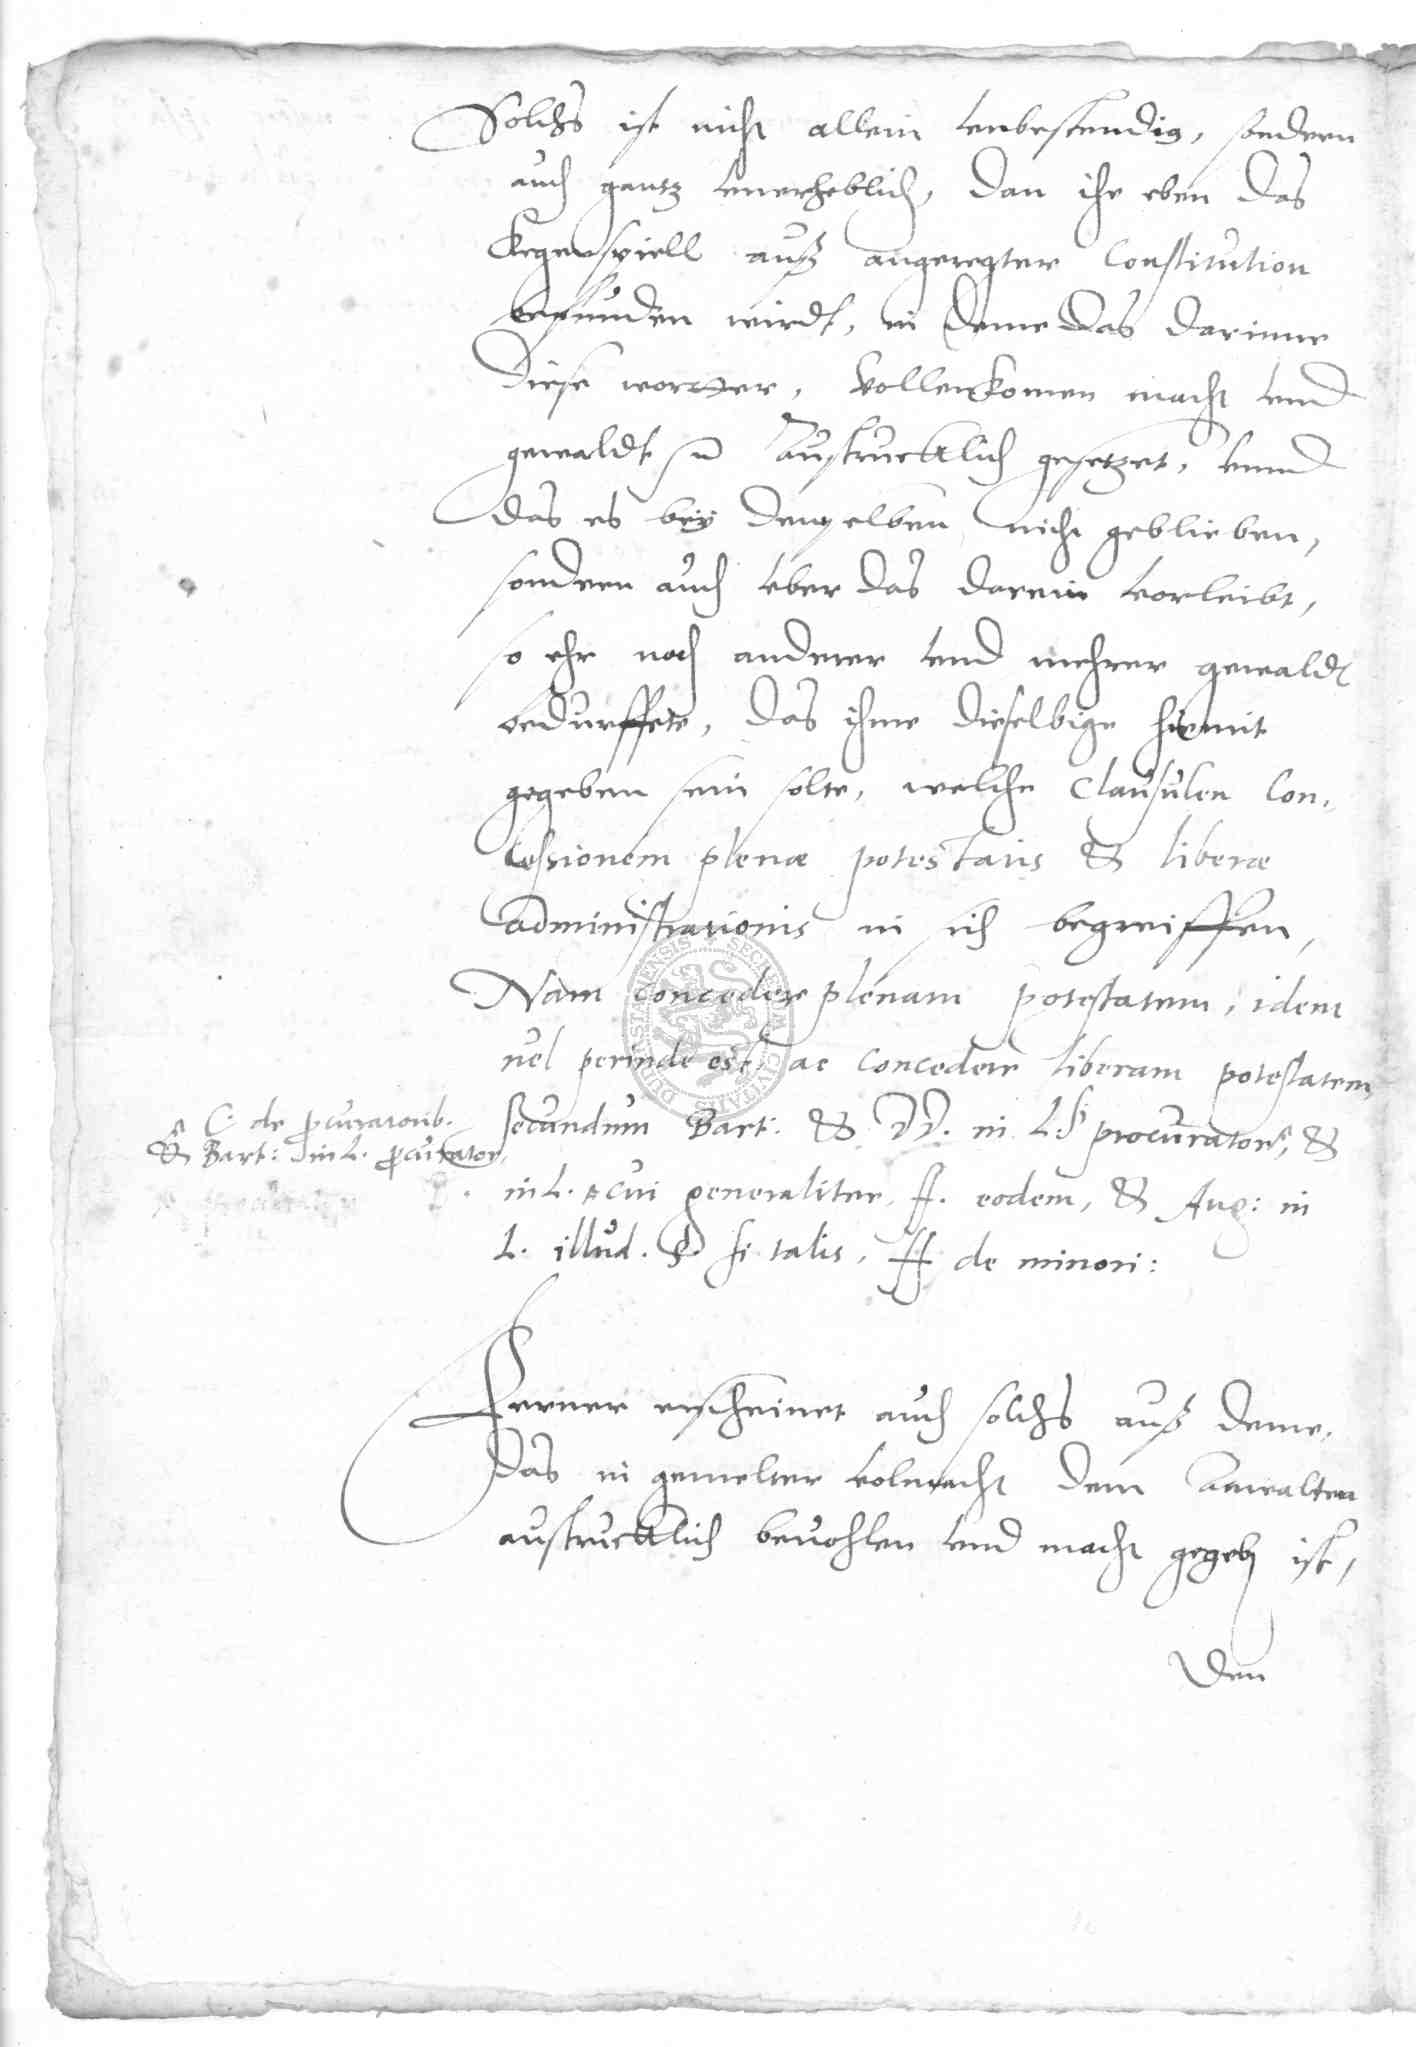 Solchs ist nicht allein vnbestendig, sondern
auch gantz vnerheblich, dan ihr eben das
kegenspiell auß angeregter Constitution
befunden wirdt, in deme das darinne
diese wortter, Vollenkomen macht vnd
gewaldt austrucklich gesetzet, vnnd
das es bey denselben nicht geblieben,
sondern auch vber das darein vorleibt,
so ehr noch anderer vnd mehrer gewaldt
bedurffete, das ihme dieselbige hiemit
gegeben sein solte, welche Clausulen Con-
cessionem plenæ potestatis & liberæ
administrationis in sich begreiffen,
Nam concedere plenam potestatem, idem
uel perinde est, ac concedere liberam potestatem
C. de procuratorib.
& Bart: in L. procurator.
secundum Bart: & DD. in L. si procurator, &
in L. cui generaliter, ff. eodem, & Ang: in
L. illud. §. si talis, ff de minori:
Ferner erscheinet auch solchs auß deme,
das in gemelter volmacht dem Anwalten
austrucklich beuohlen vnd macht gegeben ist,
den
SECRETUM CIVITATIS DUDERSTADENSIS